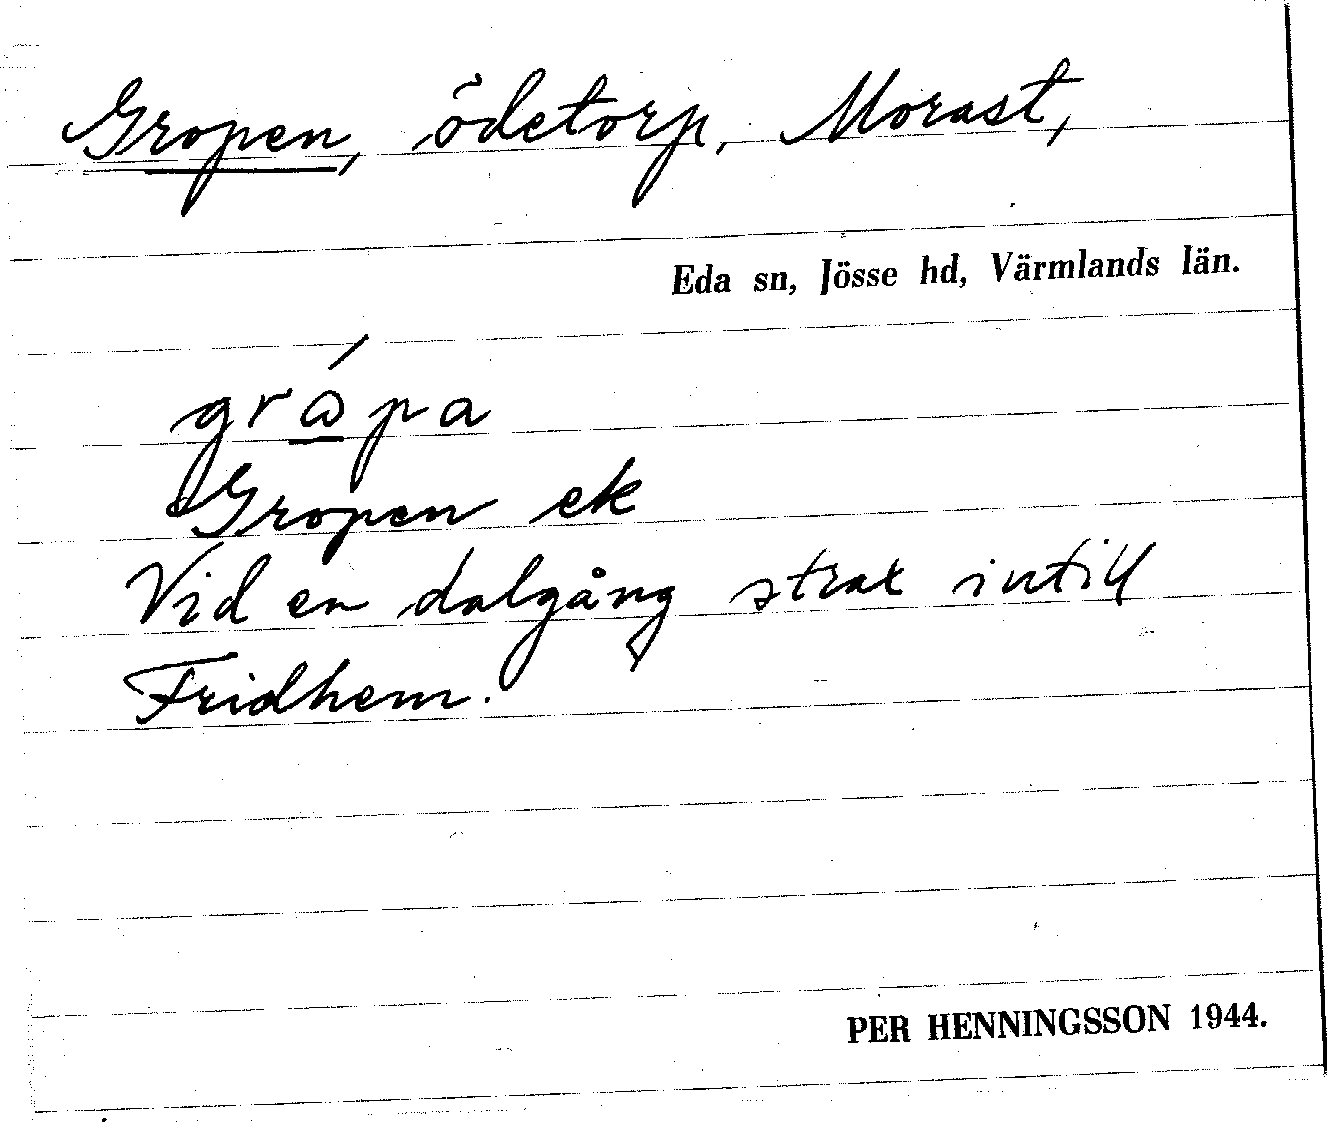 Gropen, ödetorp, Morast,
Eda sn, Jösse hd, Värmlands län.
grώ̲pa
Gropen ek
Vid en dalgång strax intill
Fridhem.
PER HENNINGSSON 1944.